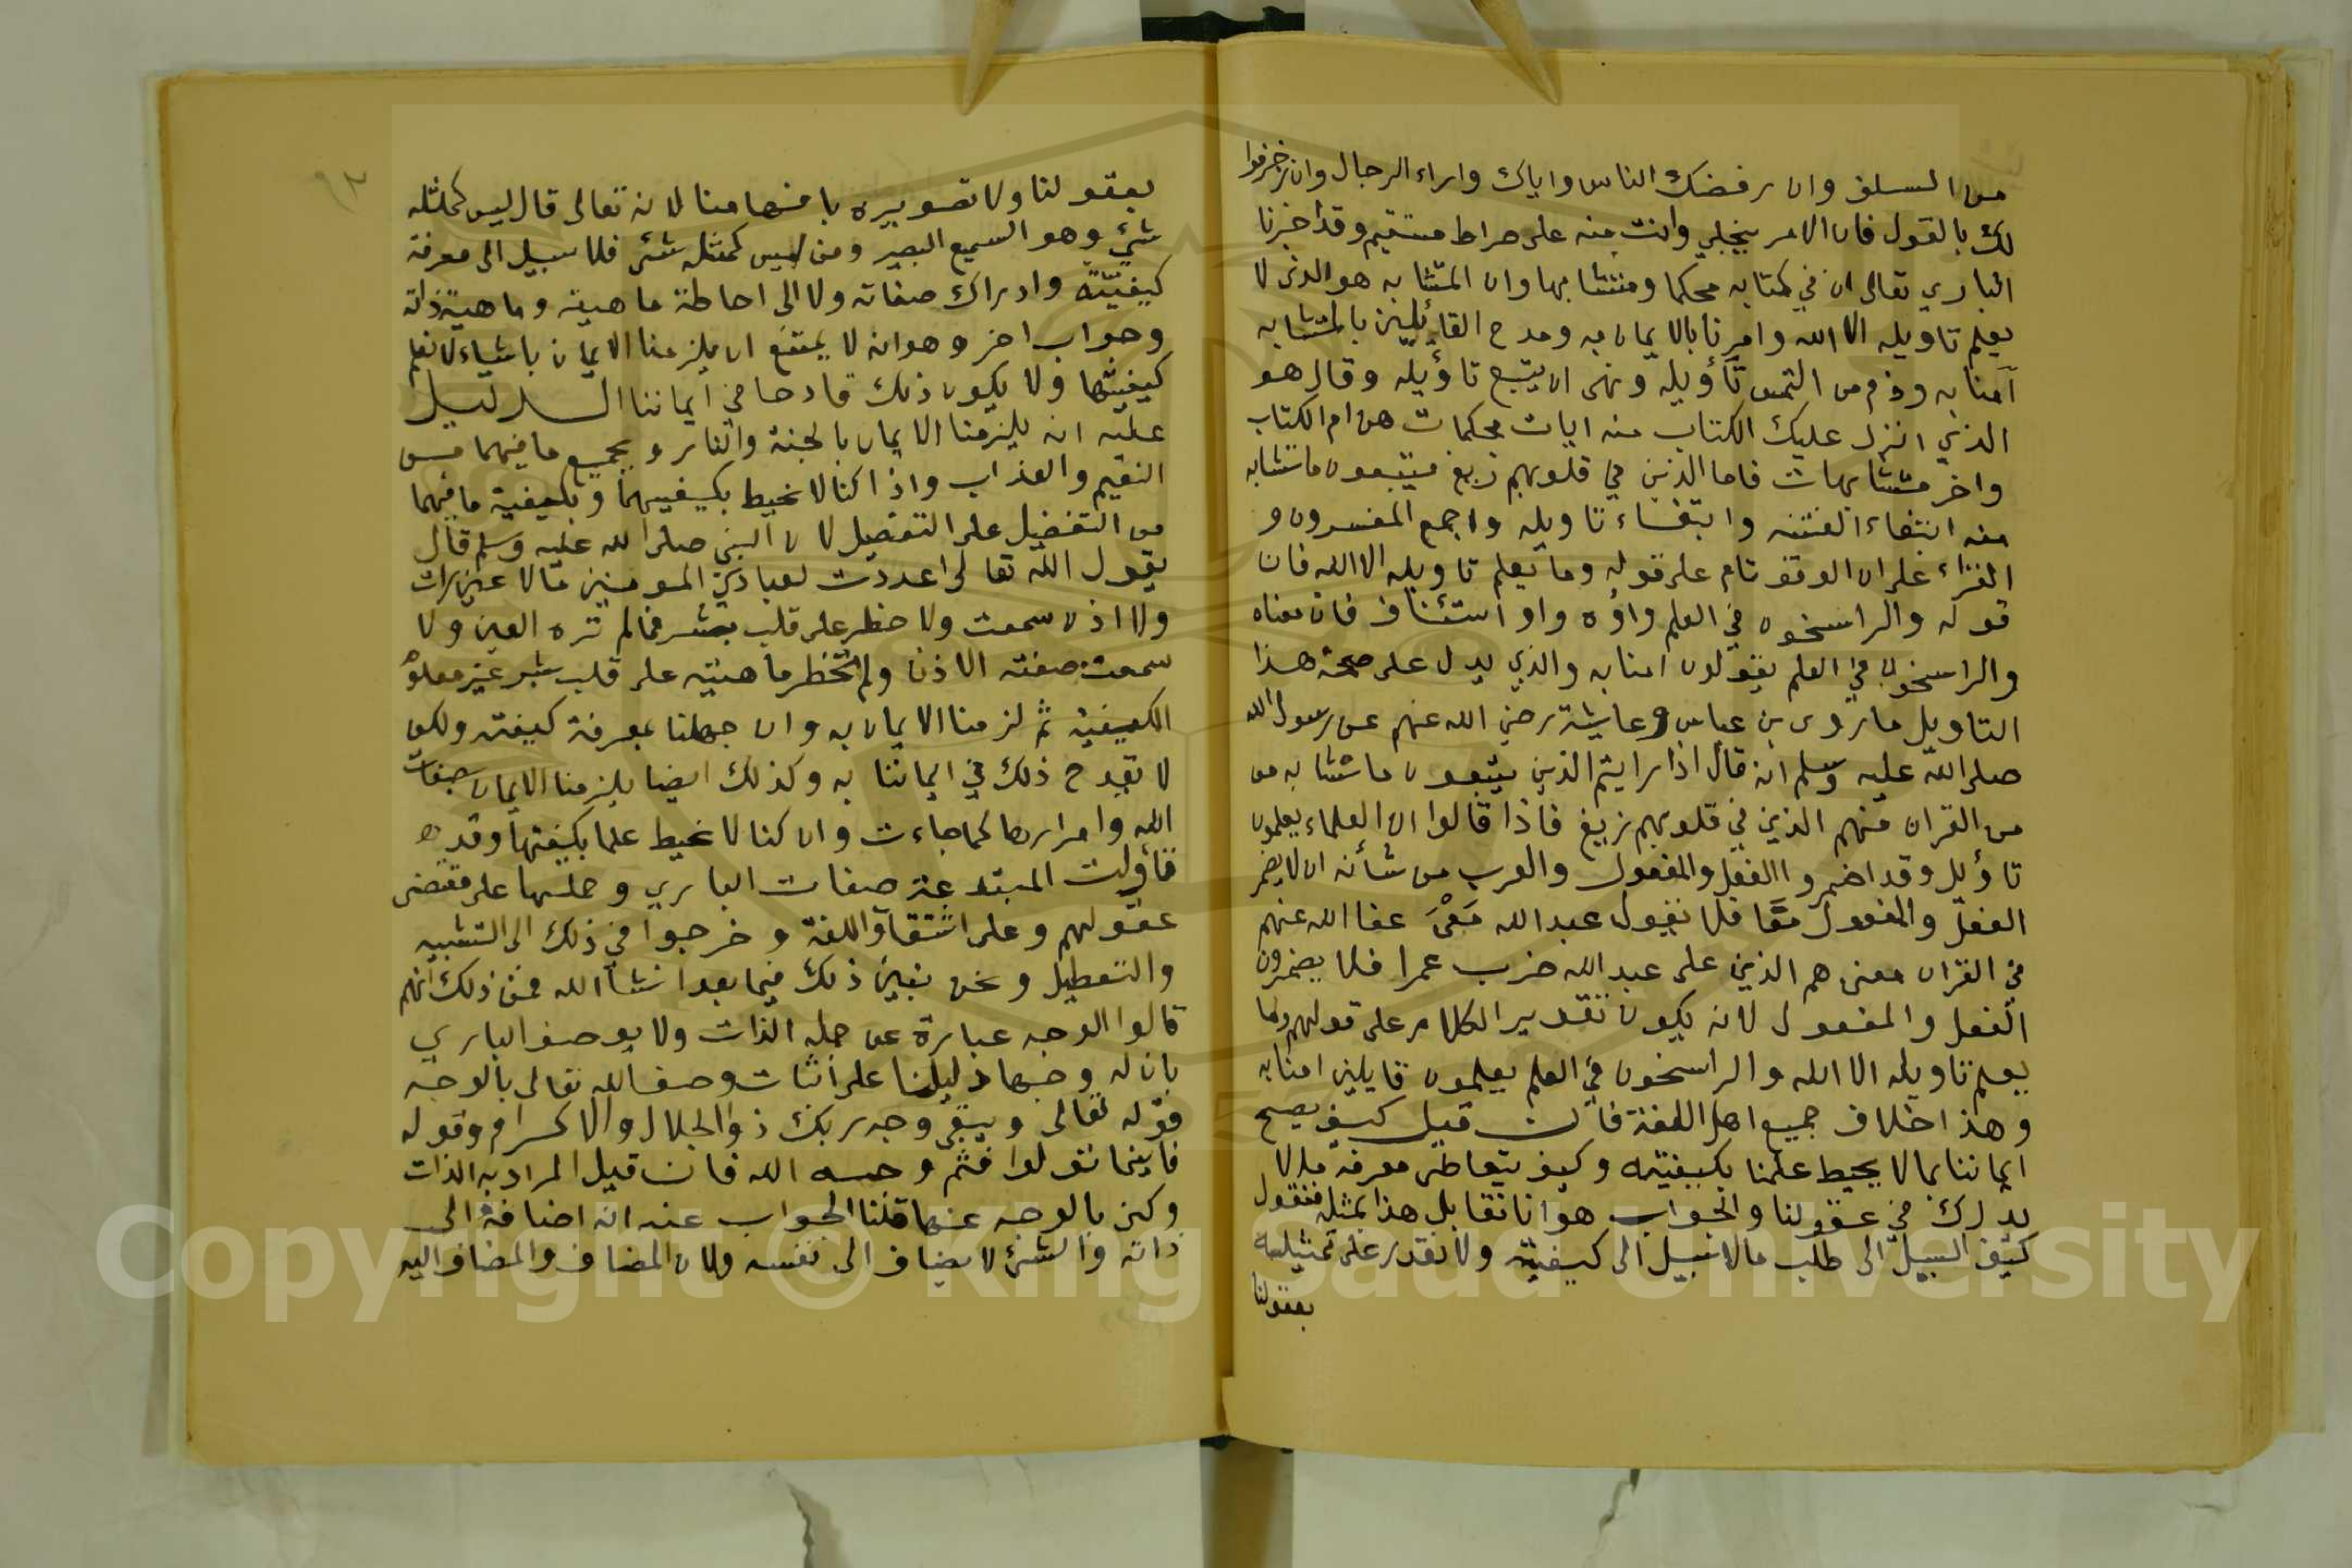 من السلف وان رفضك الناس واياك واراء الرجال وان زخرفوا
لك بالقول فان الامر ينجلي وانت منه على صراط مستقيم وقد اخبرنا
الباري تعالى ان في كتابه محكما ومتشابها وان المتشابه هو الذى لا
يعلم تاويله الا الله وامرنا بالايمان به ومدح القائلين بالمتشابه
آمنا به وذم من التمس تأويله ونهى ان يتبع تاؤيله وقال هو
الذي انزل عليك الكتاب منه ايات محكمات هن ام الكتاب
واخر متشابهات فاما الذين في قلوبهم زيغ فيتبعون ماتشابه
منه ابتغاء الفتنه وابتغاء تاويله واجمع المفسرون و
القراء على ان الوقوتام على قوله وما يعلم تاويله الا الله فان
قوله والراسخون في العلم واؤه واو استئناف فان معناه
والراسخون في العلم يقولون امنا به والذي يدل على صحة هذا
التاويل ماروى بن عباس وعايشة رضي الله عنهم عن رسول الله
صلى الله عليه وسلم انه قال اذا رايتم الذين يتبعون ماتشابه من
من القران فهم الذين في قلوبهم زيغ فاذا قالوا ان العلماء يعلمون
تاؤيل وقد اضمروا الفعل والمفعول والعرب من شأنه ان لا يضمر
الفعل والمفعول معًا فلا نقول عبد الله مَعْىَ عفا الله عنهم
في القران معنى هم الذين على عبد الله ضرب عمرا فلا يضمرون
الفعل والمفعول لانه يكون تقدير الكلام على قولهم وما
يعلم تاويله الا الله والراسخون في العلم يعلمون قايلين امنا به
وهذا خلاف جميع اهل اللغة فان قيل كيف يصح
ايماننا بما لا يحيط علمنا بكيفيته وكيف يتعاطى معرفة ما لا
يدرك في عقولنا والجواب هو انا نقابل هذا بمثله فنقول
كيف السبيل الى طلب مالا سبيل الى كيفيته ولا نقدر على تمثيله
بعقولنا
٩٣
بعقولنا ولا تصويره بافهامنا لانه تعالى قال ليس كمثله
شئ وهو السميع البصير ومن ليس كمثله شئ فلا سبيل الى معرفة
كيفيته وادراك صفاته ولا الى احاطة ماهيته وماهية ذاته
وجواب اخر وهو انه لا يمتنع ان يلزمنا الايمان باشياء لا نعلم
كيفيتها ولا يكون ذلك قادحا في ايماننا الدليل
عليه انه يلزمنا الايمان بالجنة والنار وبجميع مافيهما من
النعيم والعذاب واذا كنا لا نحيط بكيفيتهما وبكيفية مافيهما
من التفضيل على التفصيل لان النبي صلى الله عليه وسلم قال
يقول الله تعالى اعددت لعبادي المومنين مالا عين رات
ولا اذن سمعت ولا خطر على قلب بشر فمالم تره العين ولا
سمعت صفته الاذن ولم تخطر ماهيته على قلب بشر غير معلوم
الكيفية ثم لزمنا الايمان به وان جهلنا بمعرفة كيفته ولكن
لا يقدح ذلك في ايماننا به وكذلك ايضا يلزمنا الايمان بصفات
الله وامرارها كما جاءت وان كنا لا نحيط علما بكيفتها وقد
تأولت المبتدعة صفات الباري وحملها على مقتضى
عقولهم وعلى اشتقاق اللغة وخرجوا في ذلك الى التشبيه
والتعطيل ونحن نبين ذلك فيما بعد انشاالله فمن ذلك انهم
قالوا الوجه عبارة عن جمله الذات ولا يوصف الباري
بان له وجها دليلنا على اثبات وصف الله تعالى بالوجه
قوله تعالى ويبقى وجه ربك ذو الجلال والاكرام وقوله
فاينما تولوا فثم وجه الله فان قيل المراد به الذات
وكنى بالوجه عنها قلنا الجواب عنه انه اضافه الى
ذاته والشئ لا يضاف الى نفسه ولان المضاف والمضاف اليه
Copyright © King Saud University